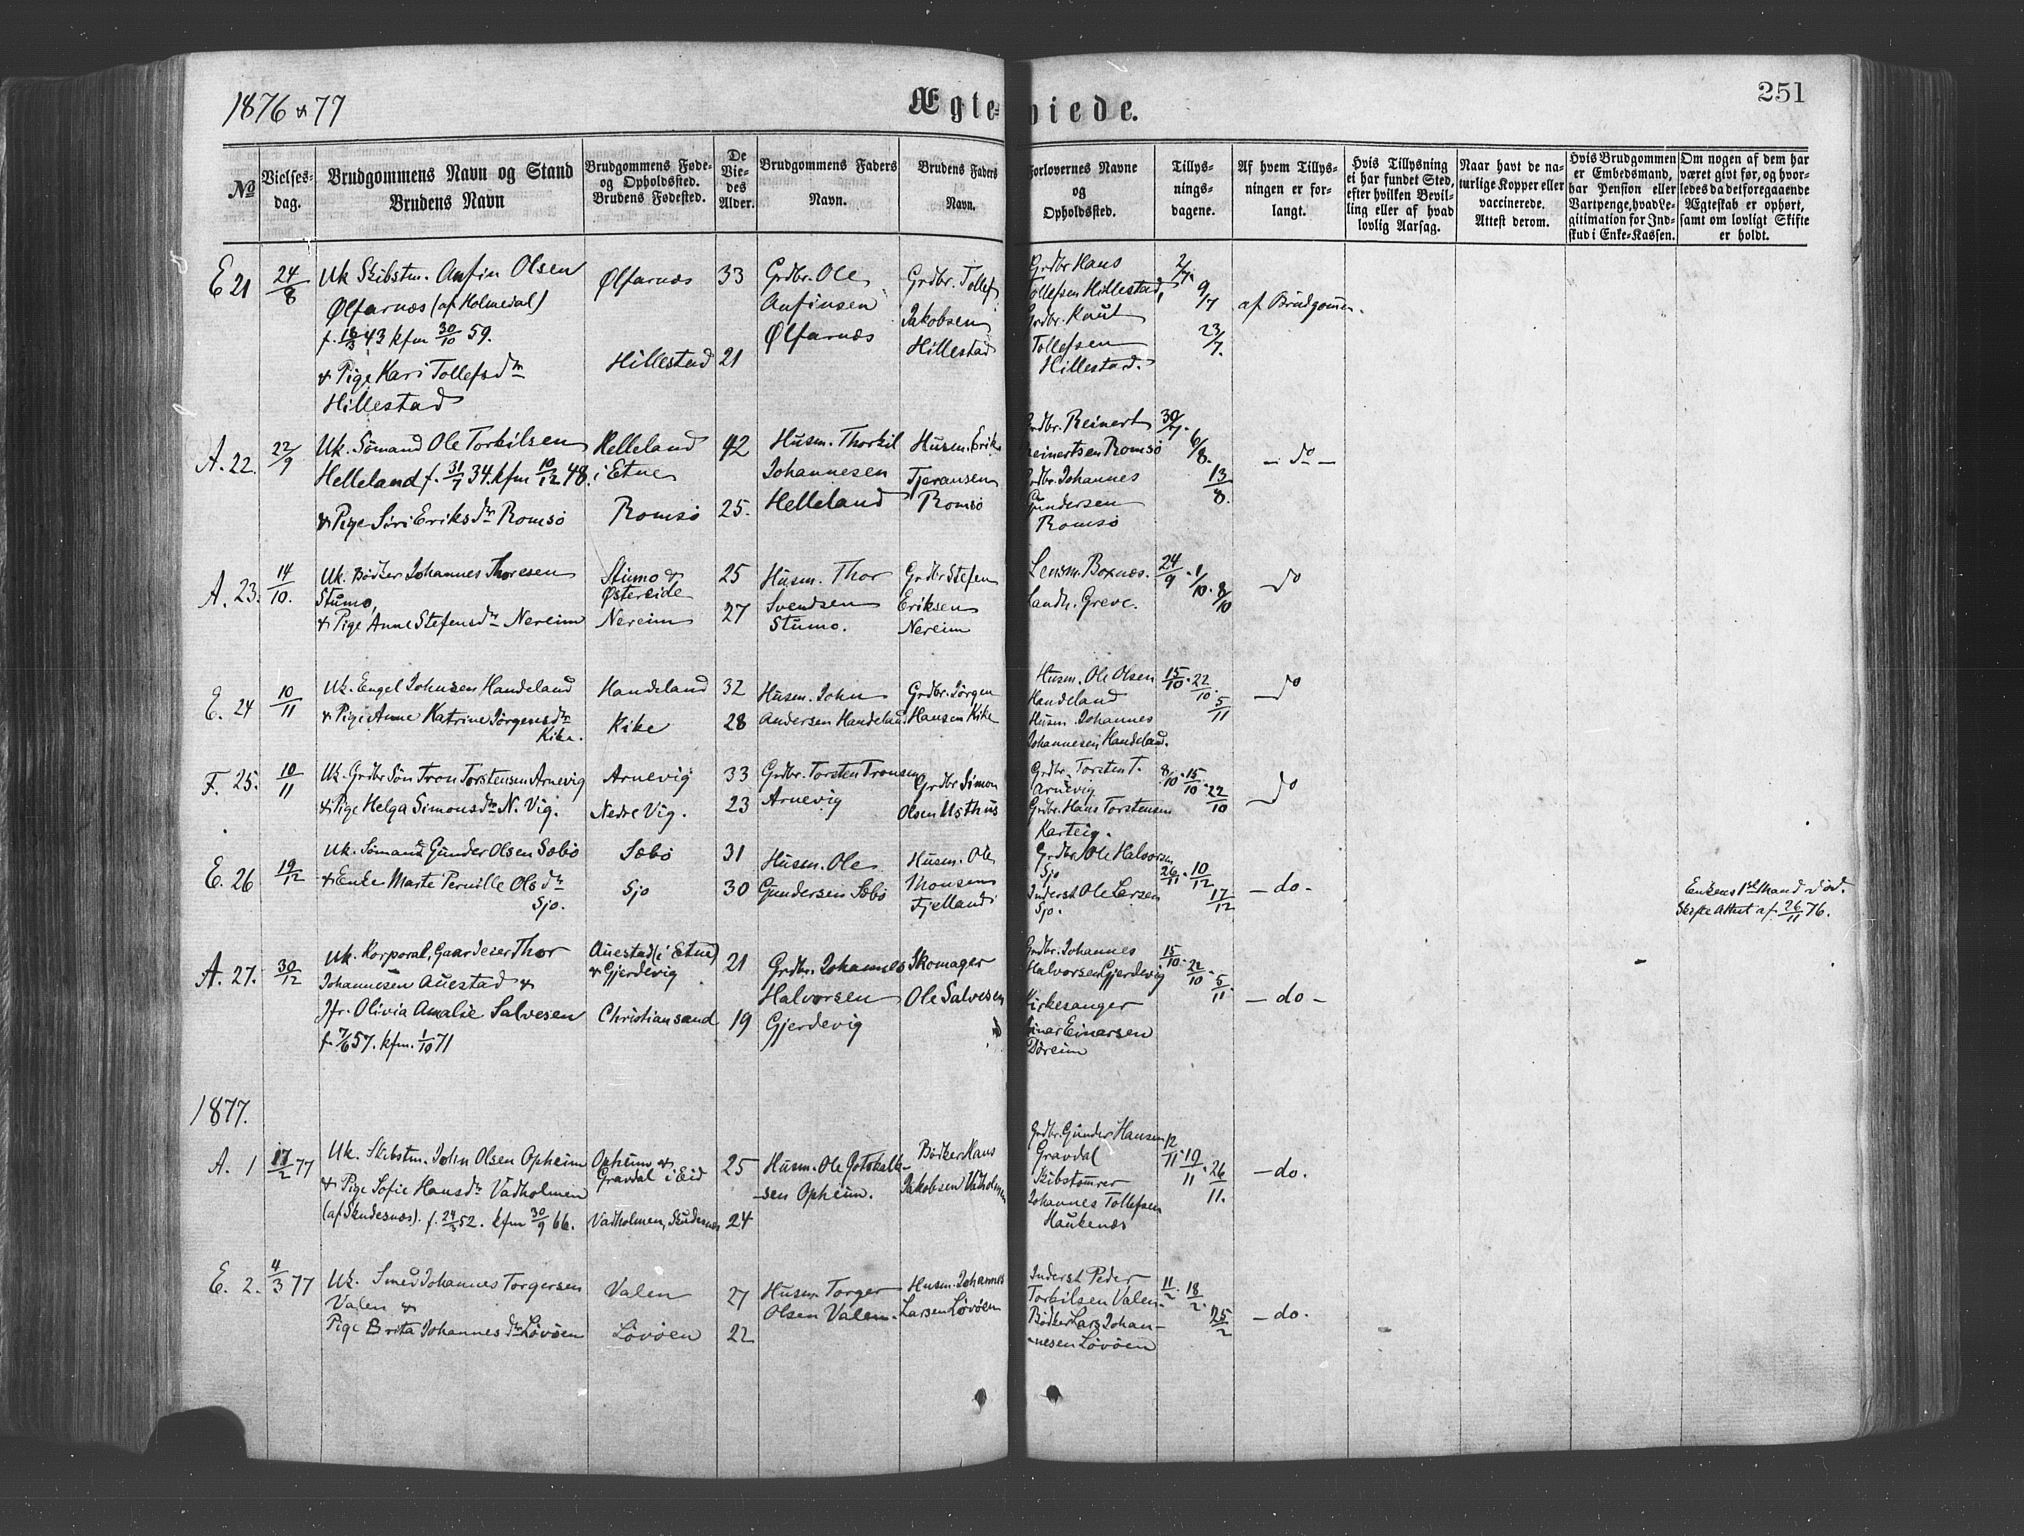 1876 & 77
Ægteviede.
251
No
Vielsesdag.
Brudgommens Navn og Stand
Brudens Navn
Brudgommens Føde- og Opholdssted.
Brudens Fødested.
De Viedes Alder.
Brudgommens Faders Navn.
Brudens Faders Navn.
Forlovernes Navne og Opholdssted.
Tillysningsdagene.
Af hvem Tillysningen er forlangt.
Hvis Tillysning ei har fundet Sted, efter hvilken Bevilling eller af hvad lovlig Aarsag.
Naar havt de naturlige Kopper eller vaccinerede. Attest derom.
Hvis Brudgommen er Embedsmand, har Pension eller Vartpenge, hvad Legitimation for Indskud i Enke-Kassen.
Om nogen af dem har været givt før, og hvorledes da det foregaaende Ægteskab er ophørt, samt om lovligt Skifte er holdt.
E 21 24/8 Uk Skibstm. Anfin Olsen
Ølfarnæs (af Holmedal)
f. 18/3 43 kfm 30/10 59.
& Pige Kari Tollefsdtr
Hillestad
Ølfarnæs 33
Hillestad 21
Grdbr. Ole
Anfinsen
Ølfarnæs
Grdbr. Tollef
Jakobsen
Hillestad
Grdbr Hans
Tollefsen Hillestad,
Grdbr. Knut
Tollefsen
Hillestad.
2/7. 9/7 23/7.
af Brudgomen.
A. 22. 22/9 Uk. Sømand Ole Torkilsen
Helleland f. 31/7 34. kfm 10/12 48.
& Pige Siri Eriksdtr Romsø
Helleland 42
i Etne
Romsø 25.
Husm. Thorkil
Johannesen
Helleland
Husm. Erik
Tjeransen
Romsø
Grdbr. Reinert
Reinertsen Romsø
Grdbr. Johannes
Gundersen
Romsø
30/7. 6/8. 13/8.
– do –
A. 23. 14/10. Uk. Bødker Johannes Thoresen
Stumo,
& Pige Anne Stefensdtr Nereim
Stumo & 25
Østereide
Nereim 27
Husm. Thor
Svendsen
Stumo.
Grdbr Stefen
Eriksen
Nereim
Lensm. Boxnæs.
Landh. Greve.
24/9 . 1/10 . 8/10
do
E. 24 10/11 Uk. Engel Johnsen Handeland
& Pige Anne Katrine Jørgensdtr
Kike.
Handeland 32
Kike 28
Husm. John
Andersen Handeland
Grdbr. Jørgen
Hansen Kike
Husm. Ole Olsen
Handeland
Husm. Johannes
Johannesen Handeland.
15/10 . 22/10 . 5/11
do
F. 25. 10/11 Uk. Grdbr Søn Tron Torstensen Arnevig
& Pige Helga Simonsdtr N. Vig.
Arnevig 33
Nedre Vig. 23
Grdbr. Torsten Tronsen
Arnevig
Grdbr Simon
Olsen Usthus
Grdbr. Torsten T.
Arnevig
Grdbr. Hans Torstensen
Karteig.
8/10 . 15/10 . 22/10
do
E. 26 19/12 Uk. Sømand Gunder Olsen Sæbø
& Enke Marte Pernille Olsdtr
Sjo.
Sæbø 31
Sjo 30
Husm. Ole
Gundersen Sæbø
Husm. Ole
Monsen
Fjelland
Grdbr. Ole Halvorsen
Sjo
Inderst Ole Larsen
Sjo.
26/11 . 10/12 17/12
– do.
Enkens 1ste Mand død.
Skifte Attest af 26/11 76.
A. 27. 30/12 Uk. Korporal, Gaardeier Thor
Johannesen Auestad &
Jfr. Olivia Amalie Salvesen
f. 7/6 57. kfm. 1/10 71
Auestad (i Etne) 21
& Gjerdevig
Christiansand 19
Grdbr. Johannes
Halvorsen
Gjerdevig
Skomager
Ole Salvesen
Grdbr. Johannes
Halvorsen Gjerdevig
Kirkesanger
Einar Einarsen
15/10 . 22/10 . 5/11.
– do –
1877.
A. 1 17/2 77 Uk. Skibstm. John Olsen Opheim
& Pige Sofie Hansdtr Vadholmen
(af Skudesnæs). f. 24/3 52. kfm 30/9 66.
Opheim & 25
Gravdal i Eid
Vadholmen, Skudesnæs 24
Husm. Ole Gotskalk-
-sen Opheim.
Bødker Hans
Jakobsen Vadholmen
Grdbr. Gunder Hansen
Gravdal
Skibstømrer
Johannes Tollefsen
Haukenæs
12/11 . 19/11 . 26/11.
– do.
E. 2. 4/3 77 Uk. Smed Johannes Torgersen
Valen &
Pige Brita Johannesdtr Løvøen
Valen 27
Løvøen 22
Husm. Torger
Olsen Valen.
Husm. Johannes
Larsen Løvøen
Inderst Peder
Torkilsen Valen
Bødker Lars Johan-
-nesen Løvøen
11/2 . 18/2 . 25/2
– do.